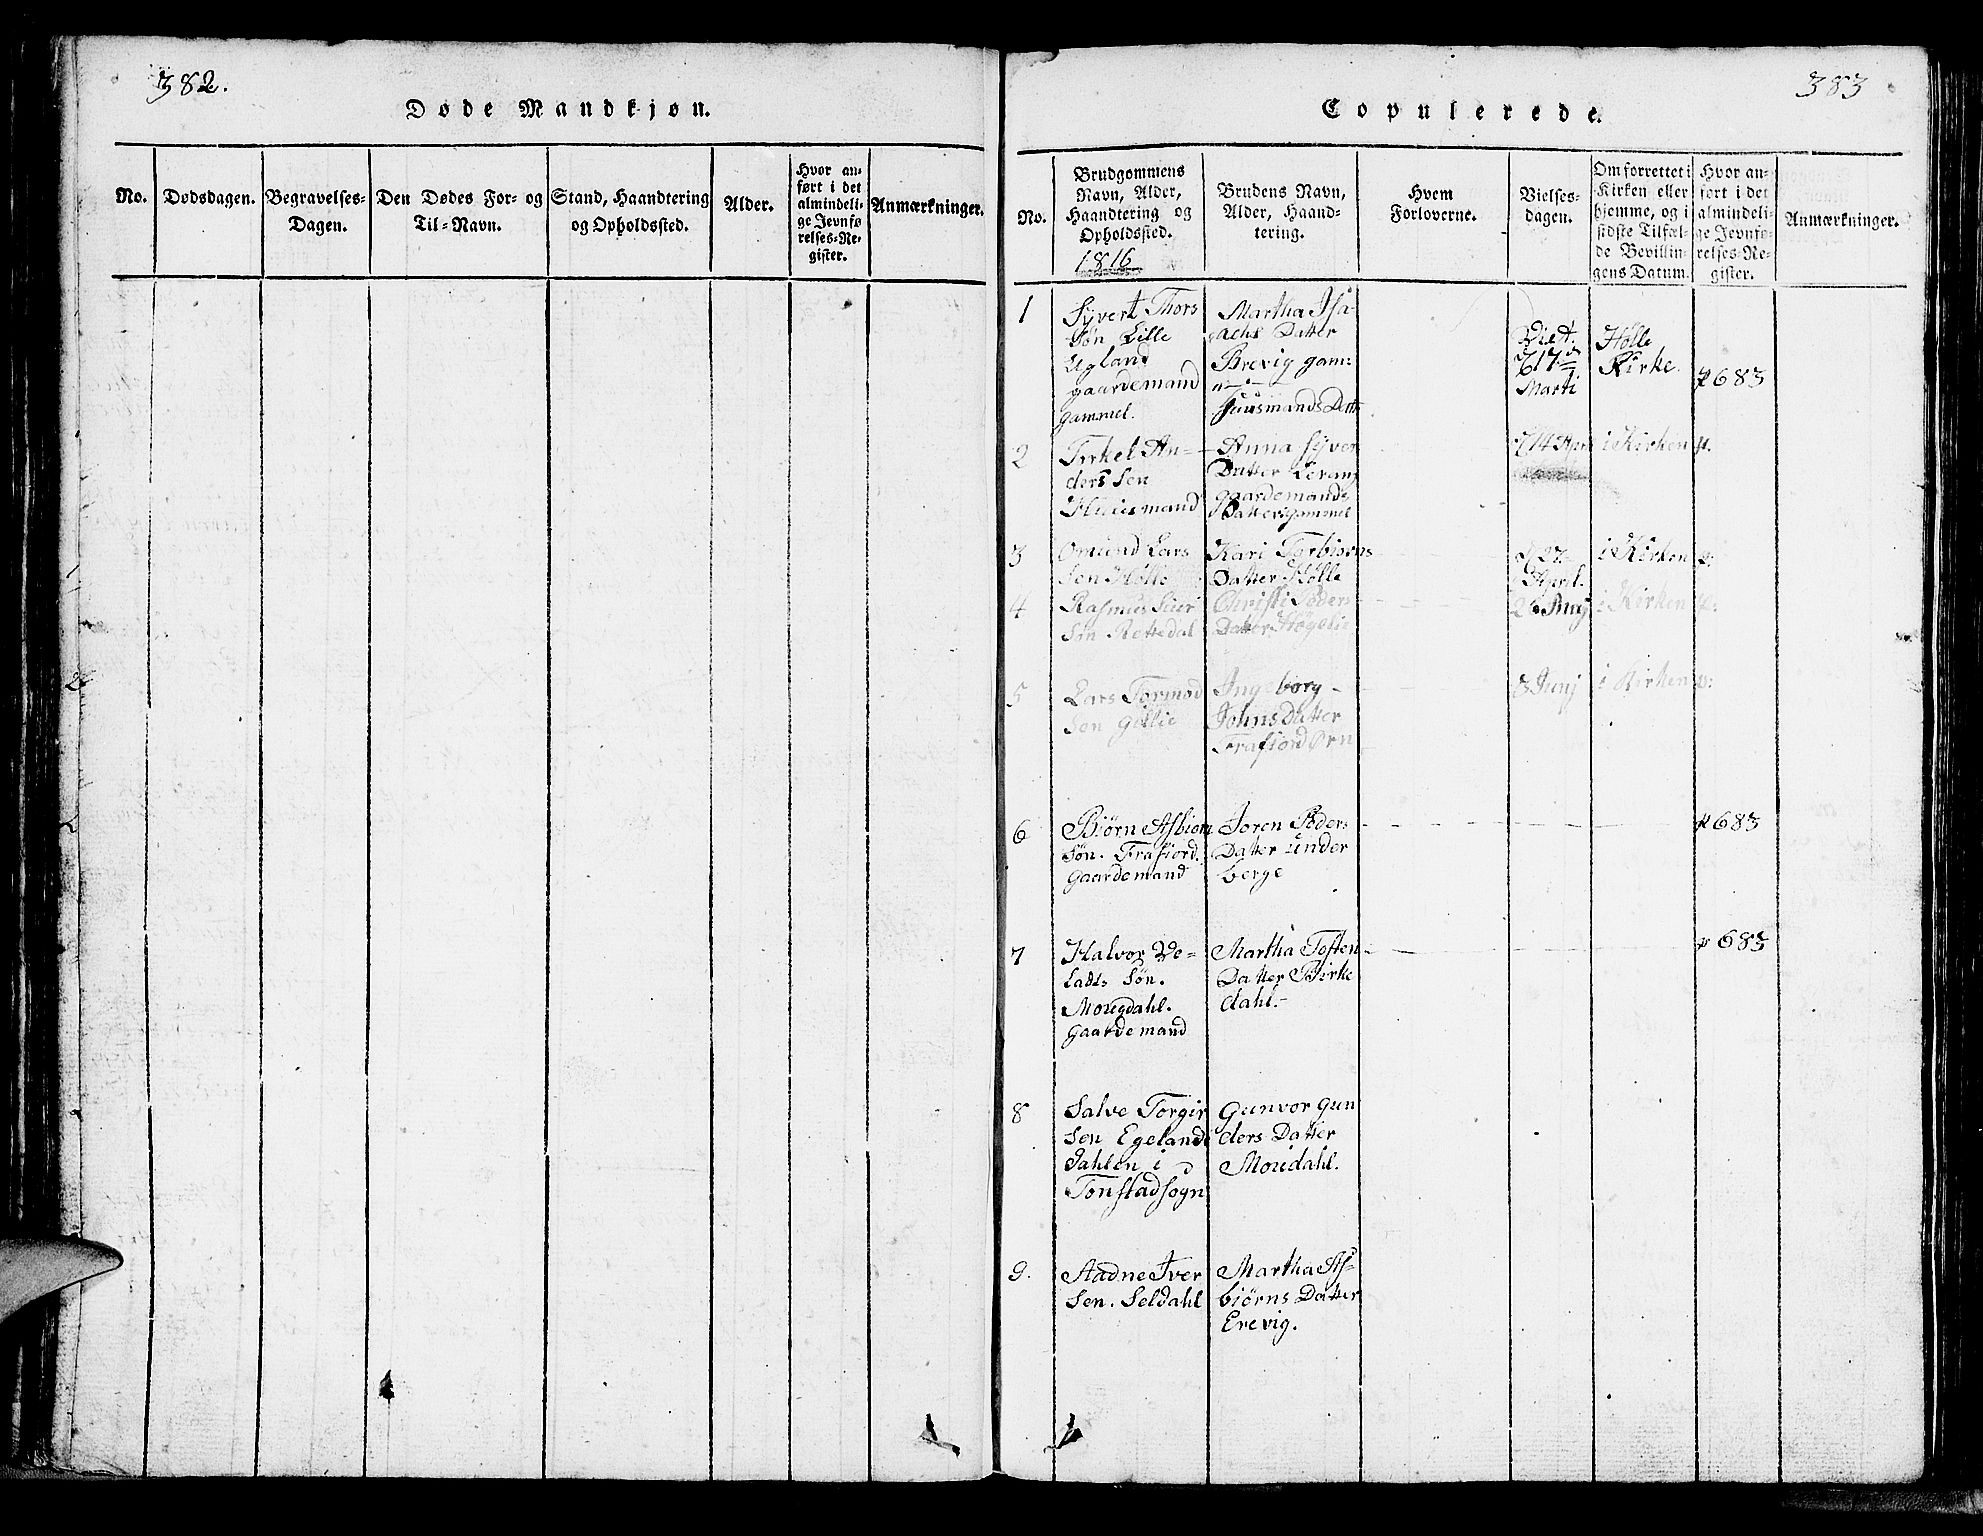 382.
Døde Mandkjøn.
No.
Dødsdagen.
Begravelses-
Dagen.
Den Dødes For- og
Til-Navn.
Stand, Haandtering
og Opholdssted.
Alder.
Hvor an-
ført i det
almindeli-
ge Jevnfø-
relses-Re-
gister.
Anmærkninger.
383
Copulerede.
No.
Brudgommens
Navn, Alder,
Haandtering og
Opholdssted.
1816
Brudens Navn,
Alder, Haand-
tering.
Hvem
Forloverne.
Vielses-
dagen.
Om forrettet i
Kirken eller
hjemme, og i
sidste Tilfæl-
de Bevillin-
gens Datum.
Hvor an-
ført i det
almindeli-
ge Jevnfø-
relses-Re-
gister.
Anmærkninger.
1
Syvert Thors
Søn Lille
Ugland
gaardemand
gammel.
Martha Isa-
achs Datter
Brevig gam:
Huusmands Datt
Viet.
17d
Marti
Hølle
Kirke.
p 683
2
Tørkel An-
ders Sen
Huusmand
Anna Syver
Datter Lerang
gaardemands
Datter gammel
14 Apr
i Kirken
p.
3
Omund Lars
Sen Hølle
Kari Torbiørns
Datter Hølle
27
April.
i Kirken
p:
4
Rasmus Siur
Sen Rettedal
Christi Peders
Datter Høgelie
26 Maj
i Kirken
p:
5
Lars Tormod
Sen Gillie
Ingeborg
Johns Datter
Frafiord Ørn
3 Junj
i Kirken
p:
6
Biørn Asbiørn
Søn. Frafiord.
gaardemand
Joren Peders
Datter under
berge
p 683
7
Halvor Ve-
Lads Søn.
Mougdahl.
gaardemand
Martha Tosten
Datter Birke
dahl.-
p 683
8
Salve Torgir
Sen Egeland
Dahlen i
Tonstad sogn
Gunvor Gun
ders Datter
Moudahl.
9.
Aadne Iver
Sen. Seldahl
Martha As-
biørns Datter
Erevig.